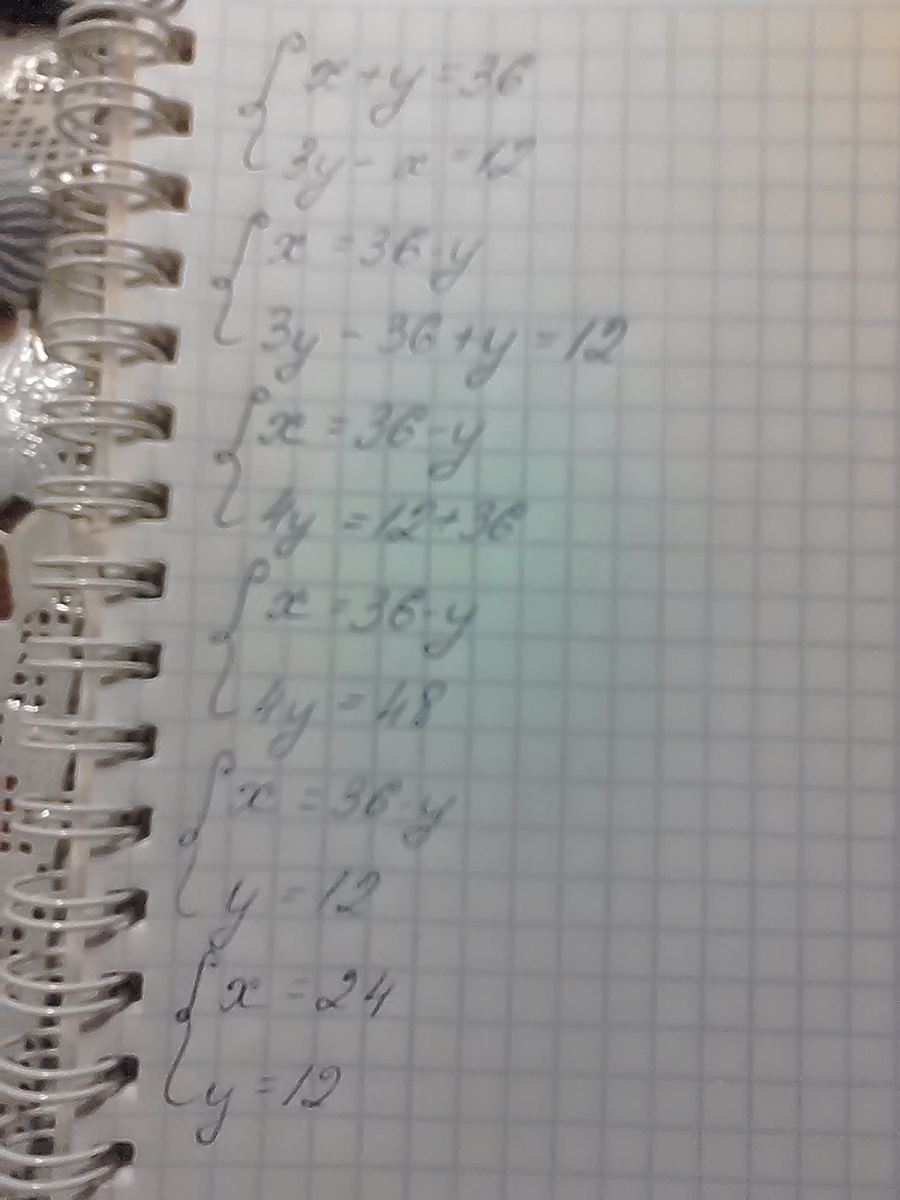 x + y = 36
3y - x = 12
x = 36 - y
3y - 36 + y = 12
x = 36 - y
4y = 12 + 36
x = 36 - y
4y = 48
x = 36 - y
y = 12
x = 24
y = 12